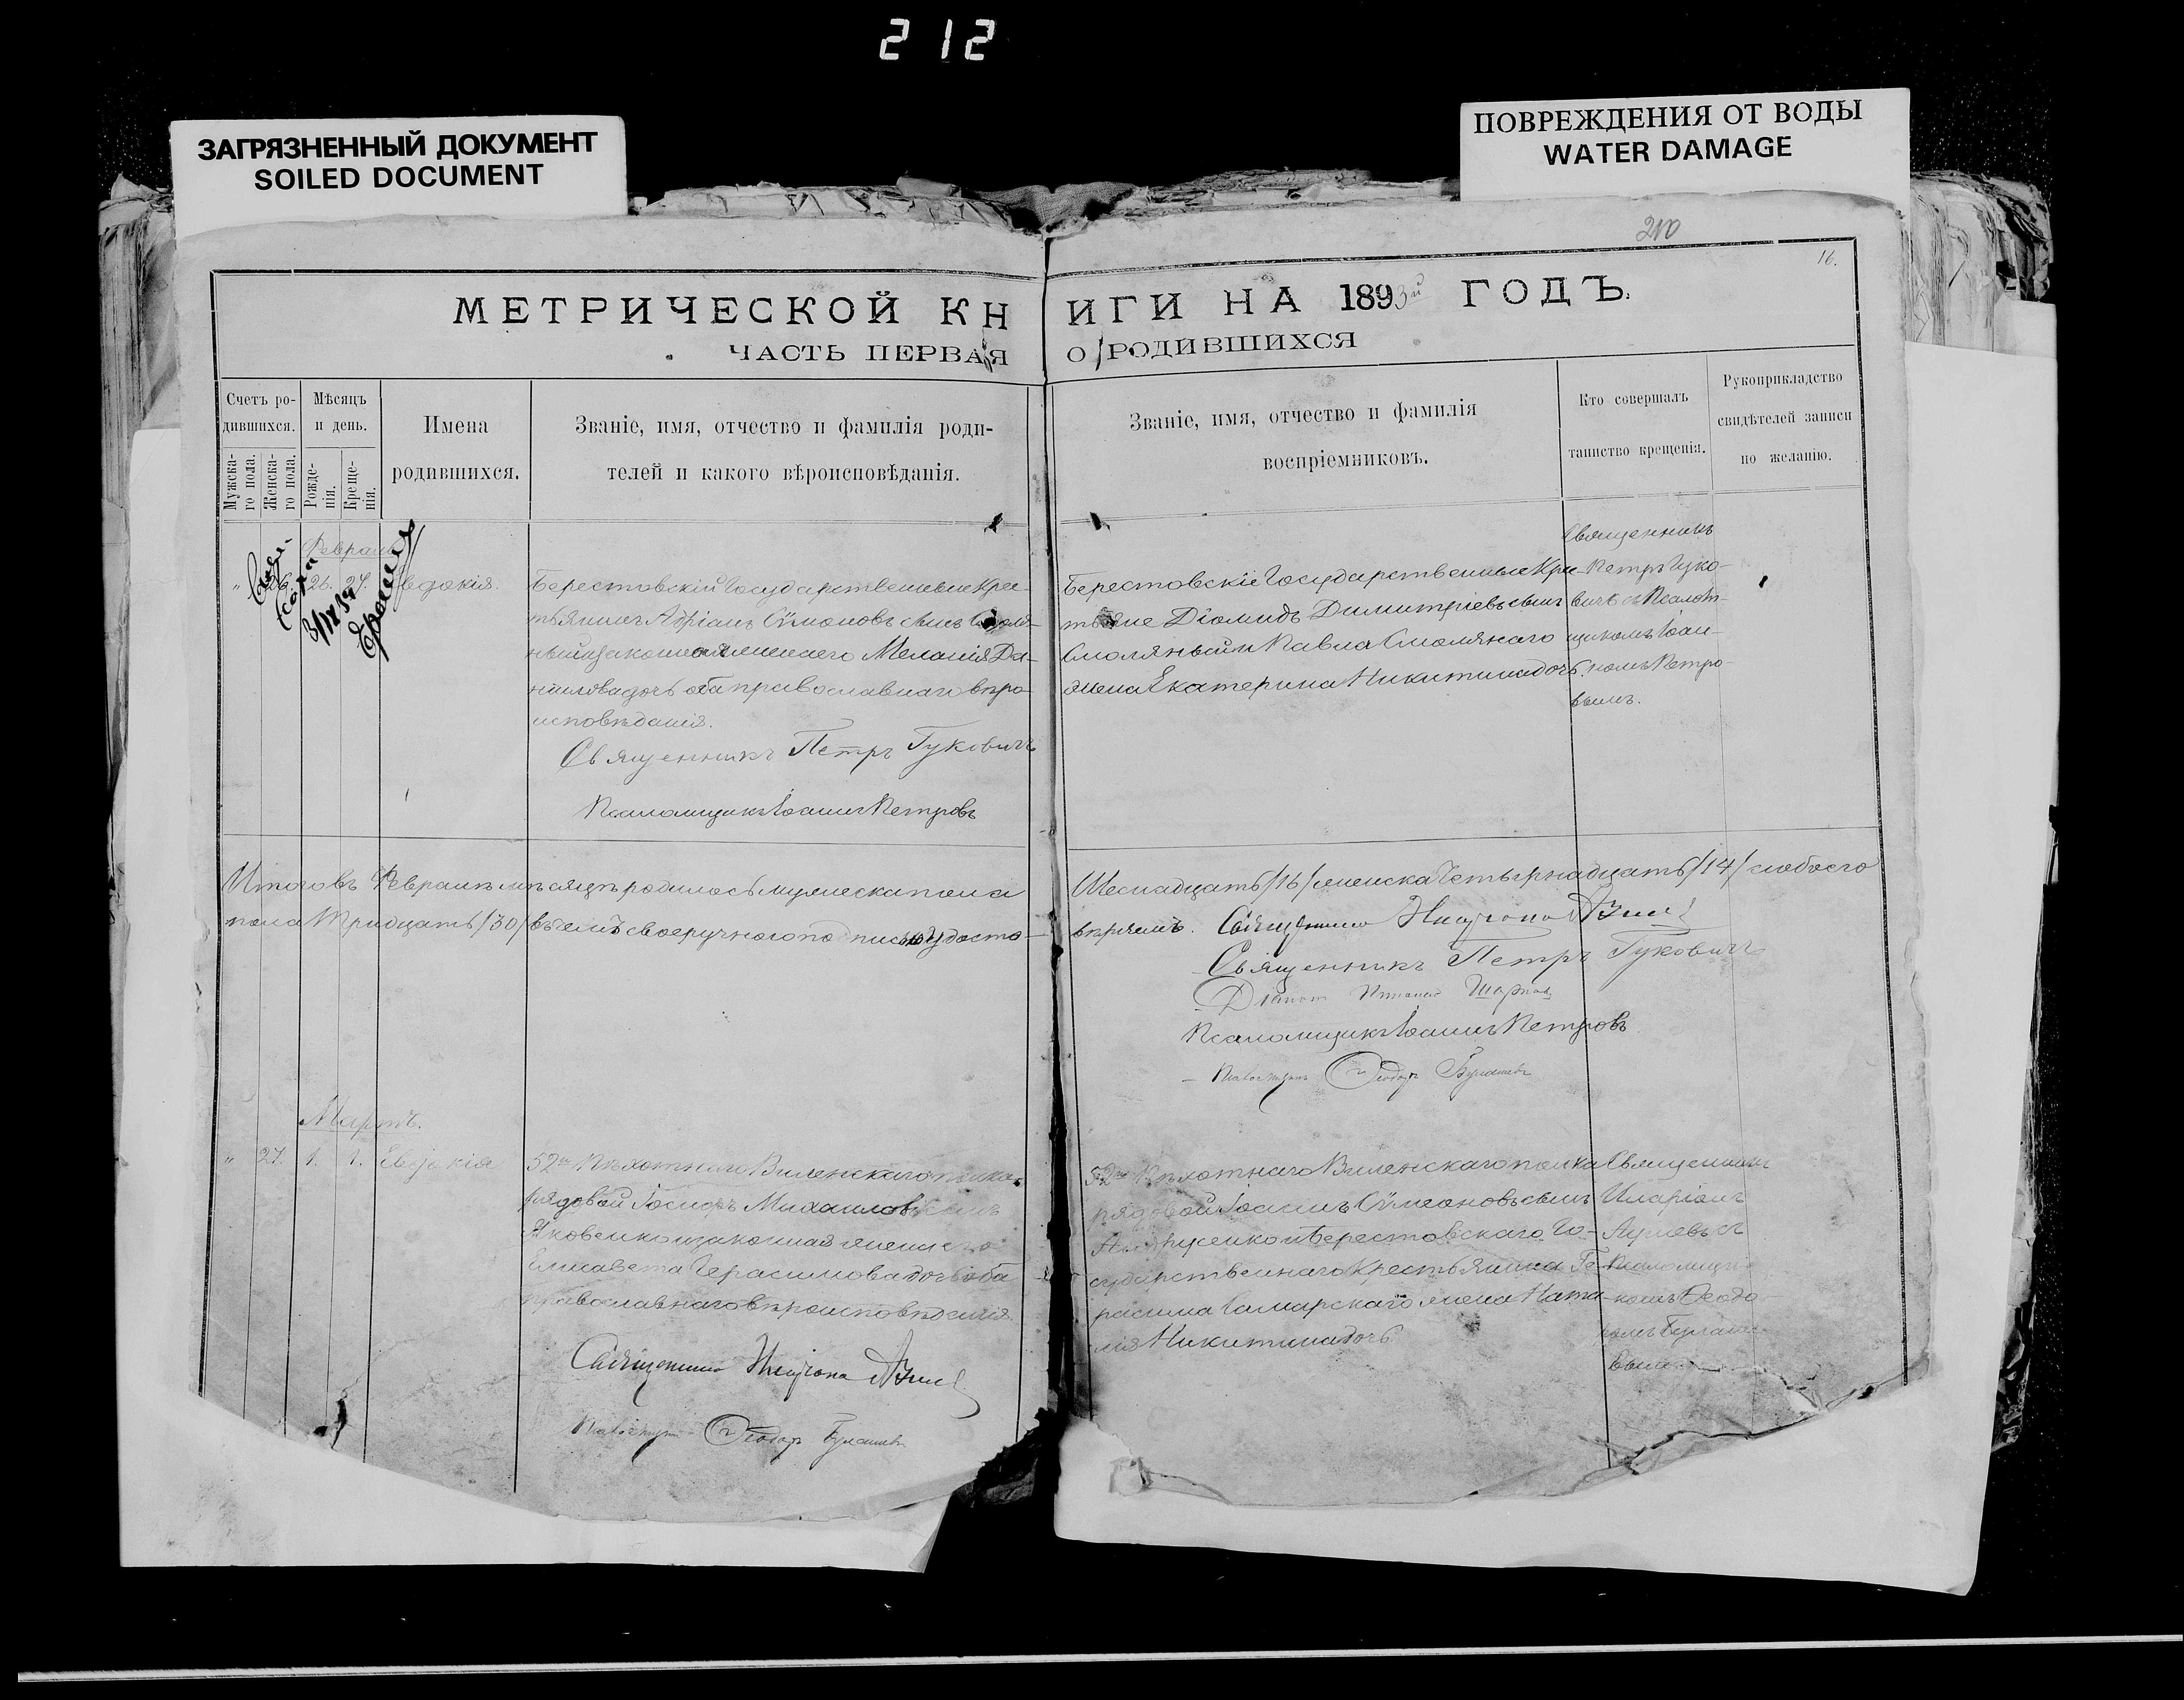 212
ЗАГРЯЗНЕННЫЙ ДОКУМЕНТ
SOILED DOCUMENT
ПОВРЕЖДЕНИЯ ОТ ВОДЫ
WATER DAMAGE
210
16.
МЕТРИЧЕСКОЙ КНИГИ НА 1893й ГОДЪ.
ЧАСТЬ ПЕРВАЯ О РОДИВШИХСЯ
Счетъ родившихся.
Мужскаго пола.
Женскаго пола.
Мѣсяцъ и день.
Рожденія.
Крещенія.
Имена
родившихся.
Званіе, имя, отчество и фамилія роди-
телей и какого вѣроисповѣданія.
Званіе, имя, отчество и фамилія
воспріемниковъ.
Кто совершалъ
таинство крещенія.
Рукоприкладство
свидѣтелей записи
по желанію.
Февраль
" 26. 26. 27. Евдокія.
Берестовскій Государственный Кре-
стьянинъ Адріанъ Сѵмоновъ сынъ Смоля-
ный и законная жена его Меланія Да-
ніилова дочь оба православнаго вѣро-
исповѣданія.
Священникъ Петръ Гуковичъ
Псаломщикъ Іоаннъ Петровъ
Берестовскіе Государственные Кре-
стьяне Діомидъ Димитріевъ сынъ
Смоляный и Павла Смолянаго
жена Екатерина Никитина дочь.
Священникъ
Петръ Гуко-
вичъ съ Псалом-
щикомъ Іоан-
номъ Петро-
вымъ.
Итого въ Февралѣ мѣсяцѣ родилось мужеска пола
Шеснадцать /16/ женска Четырнадцать /14/ а обоего
пола Тридцать /30/ въ чемъ своеручною подписью удосто-
вѣряемъ.
Священникъ Петръ Гуковичъ
Псаломщикъ Іоаннъ Петровъ
Мартъ.
" 27. 1. 1. Евдокія
52го Пѣхотнаго Виленскаго полка
рядовой Іосифъ Михаиловъ сынъ
Яковенко и законная жена его
Елисавета Герасимова дочь оба
православнаго вѣроисповѣданія.
52го Пѣхотнаго Виленскаго полка
рядовой Іоаннъ Сѵмеоновъ сынъ
и Берестовскаго Го-
сударственнаго Крестьянина Ге-
расима Самарскаго жена Ната-
лія Никитина дочь
Священникъ
Иларіонъ